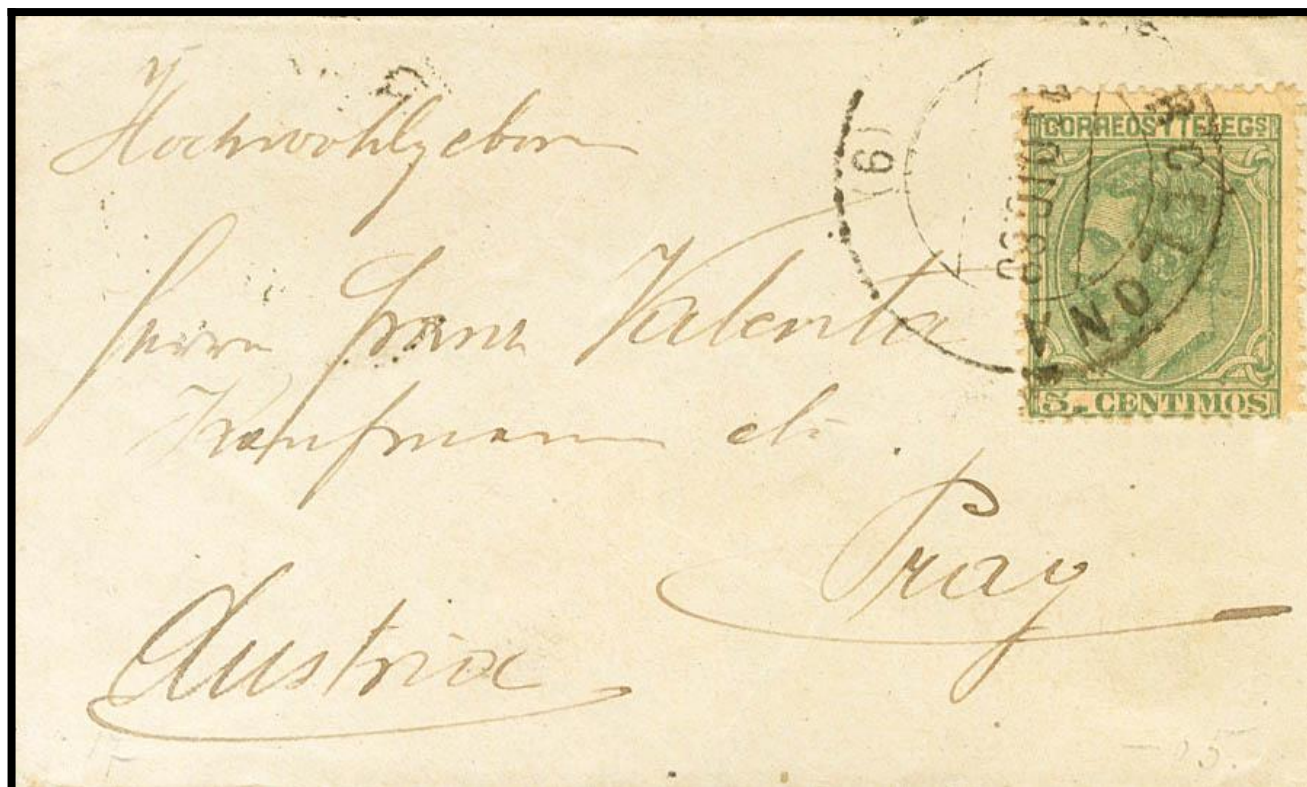 Hochwohlgeboren
Herrn Franz Valenta
Kaufmann etc.
Prag
Austria
CORREOS Y TELEGS
5. CENTIMOS
BARCELONA
(19)